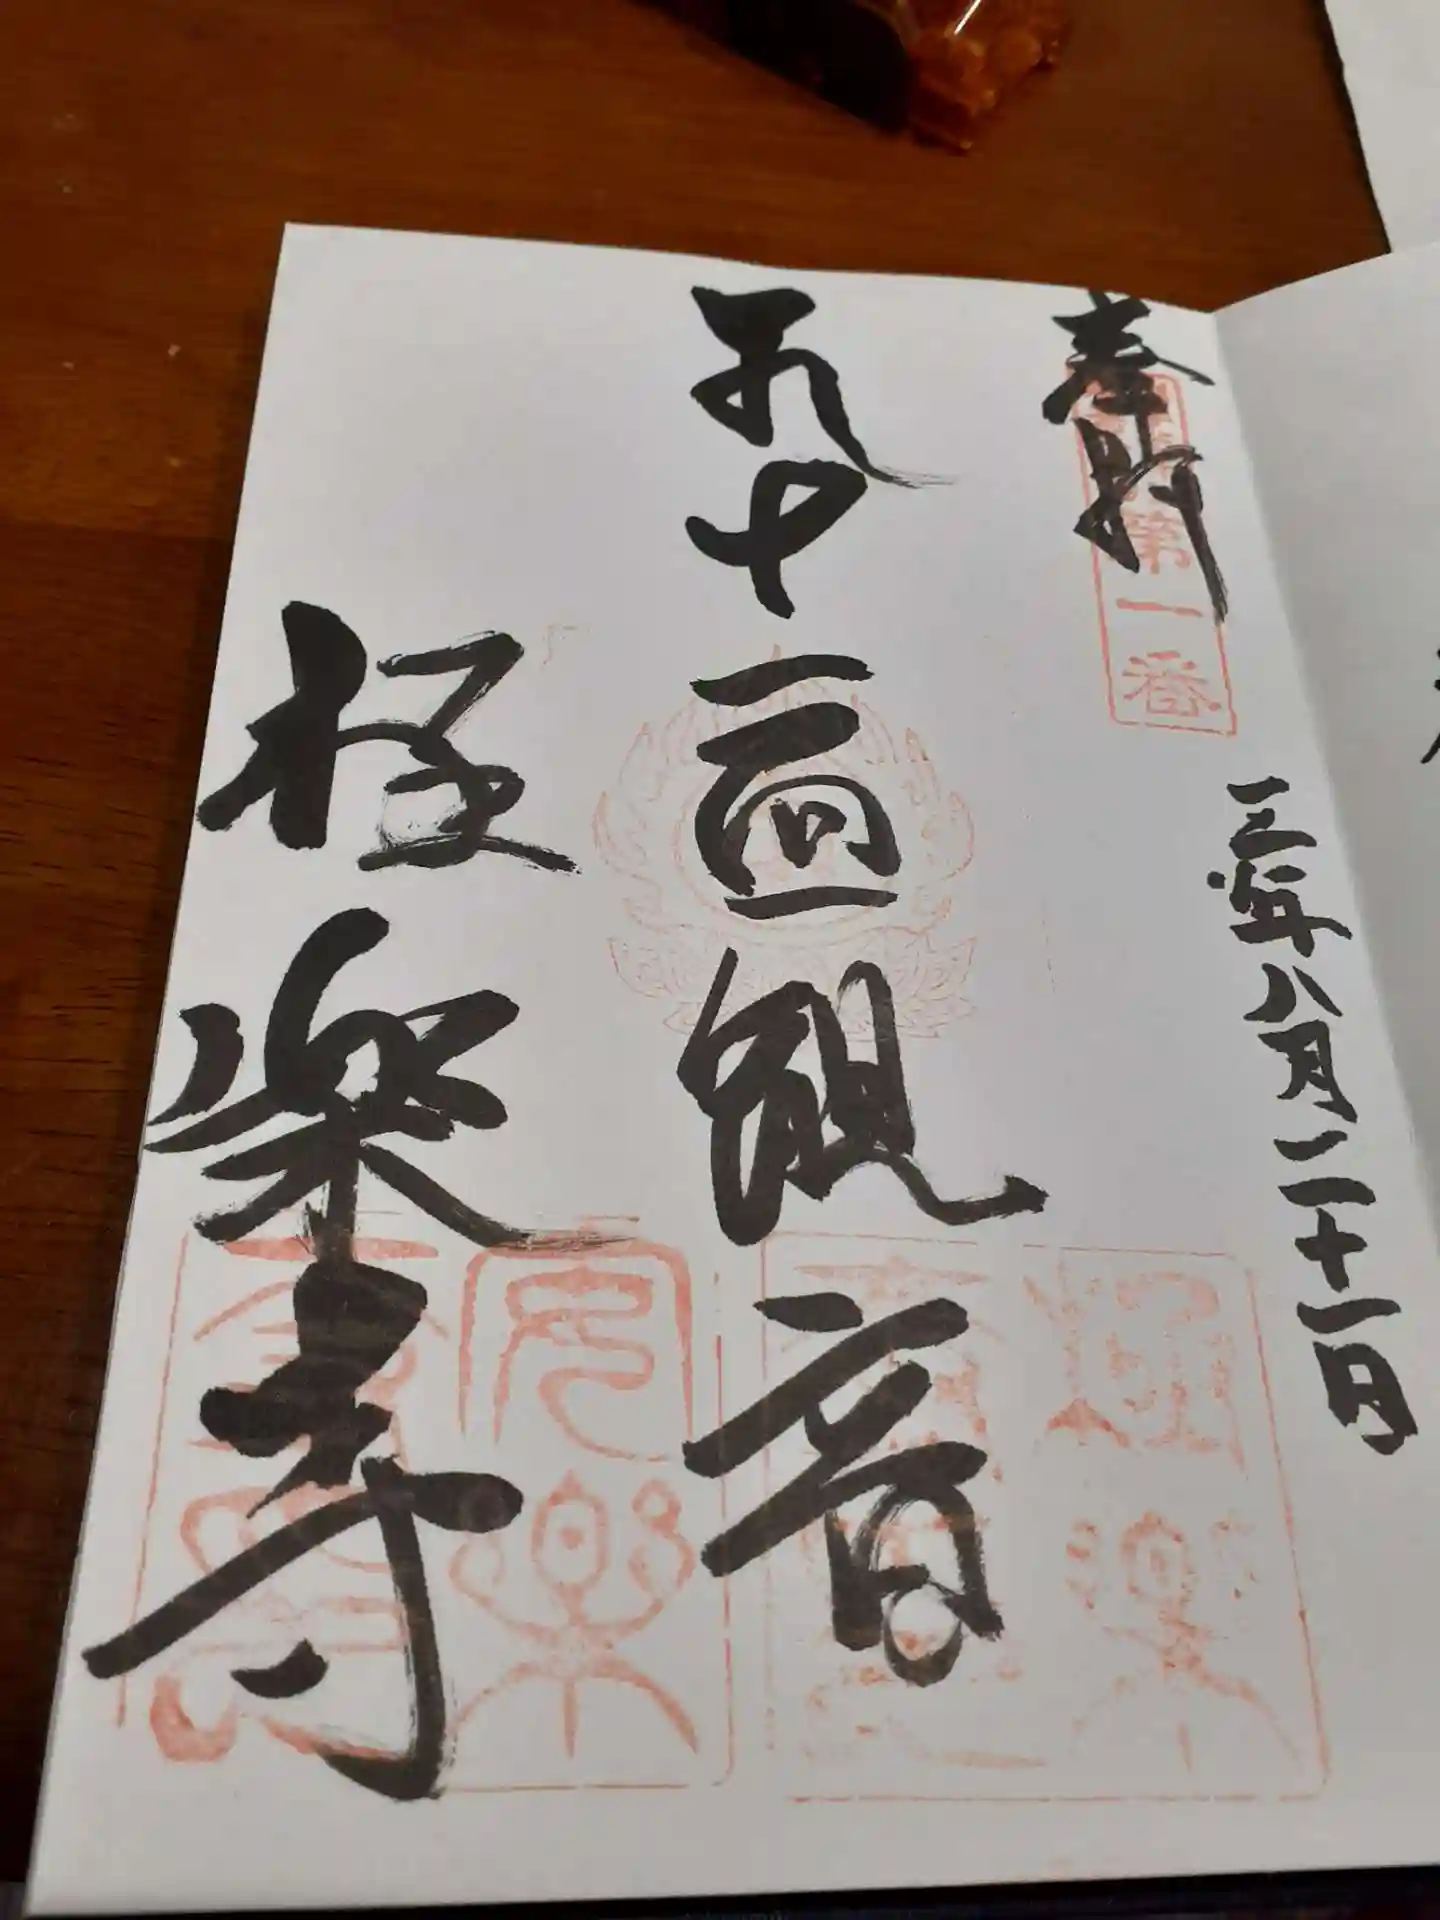 奉拝
第一番
三年八月二十一日
十一面観音
極楽寺